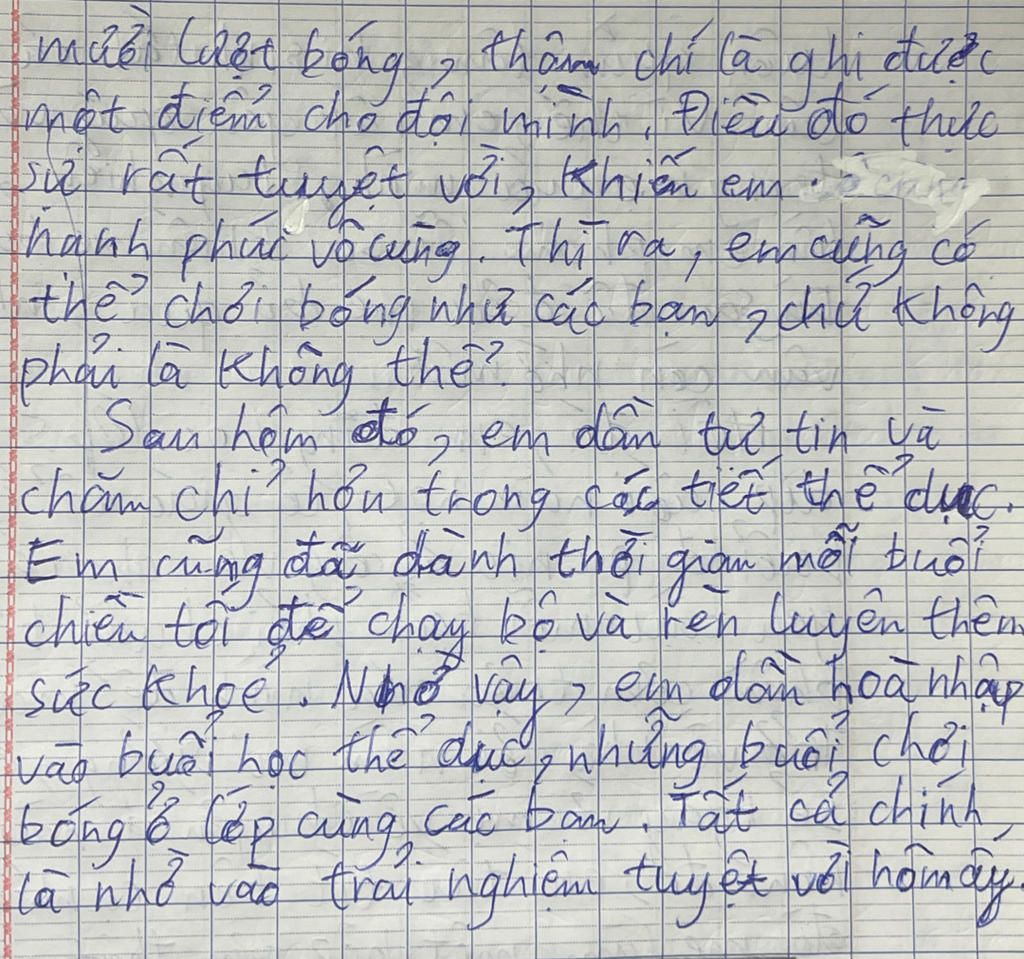 mười lượt bóng, thậm chí là ghi được
một điểm cho đội mình. Điều đó thực
sự rất tuyệt vời, khiến em
hạnh phúc vô cùng. Thì ra, em cũng có
thể chơi bóng như các bạn, chứ không
phải là không thể.
Sau hôm đó, em dần tự tin và
chăm chỉ hơn trong các tiết thể dục.
Em cũng đã dành thời gian mỗi buổi
chiều tối để chạy bộ và rèn luyện thêm
sức khoẻ. Nhờ vậy, em dần hoà nhập
vào buổi học thể dục, những buổi chơi
bóng ở lớp cùng các bạn. Tất cả chính
là nhờ vào trải nghiệm tuyệt vời hôm ấy.